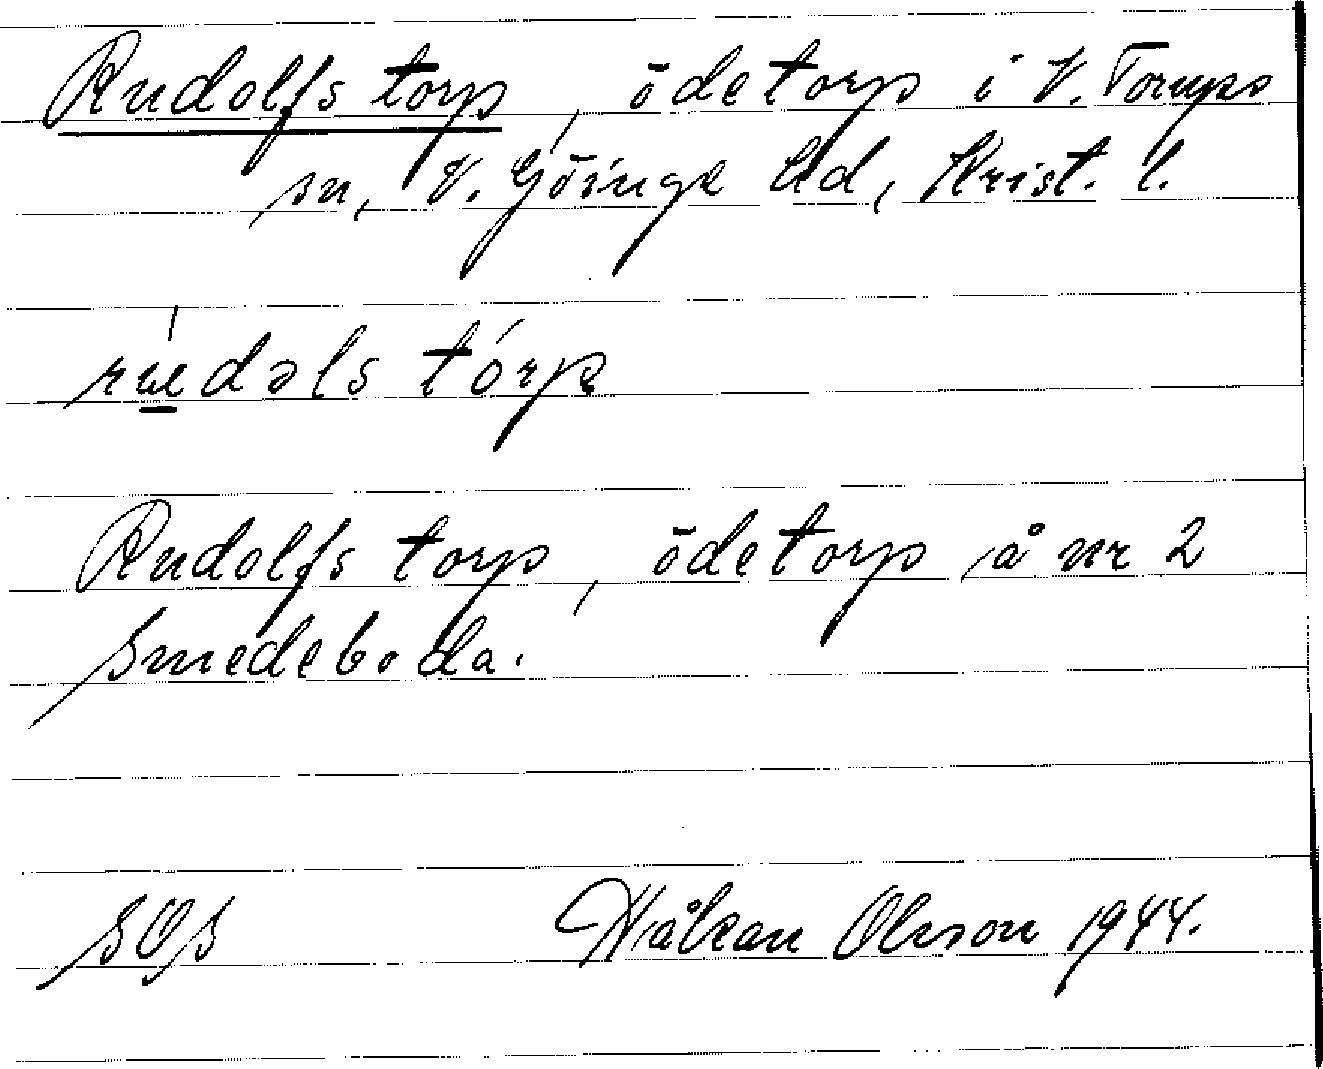 Rudolfs torp, ödetorp i V. Torups
sn, V. Göinge hd, Krist. l.
rúedəls tórp
Rudolfs torp, ödetorp å nr 2
Smedeboda.
SOS Håkan Olsson 1944.